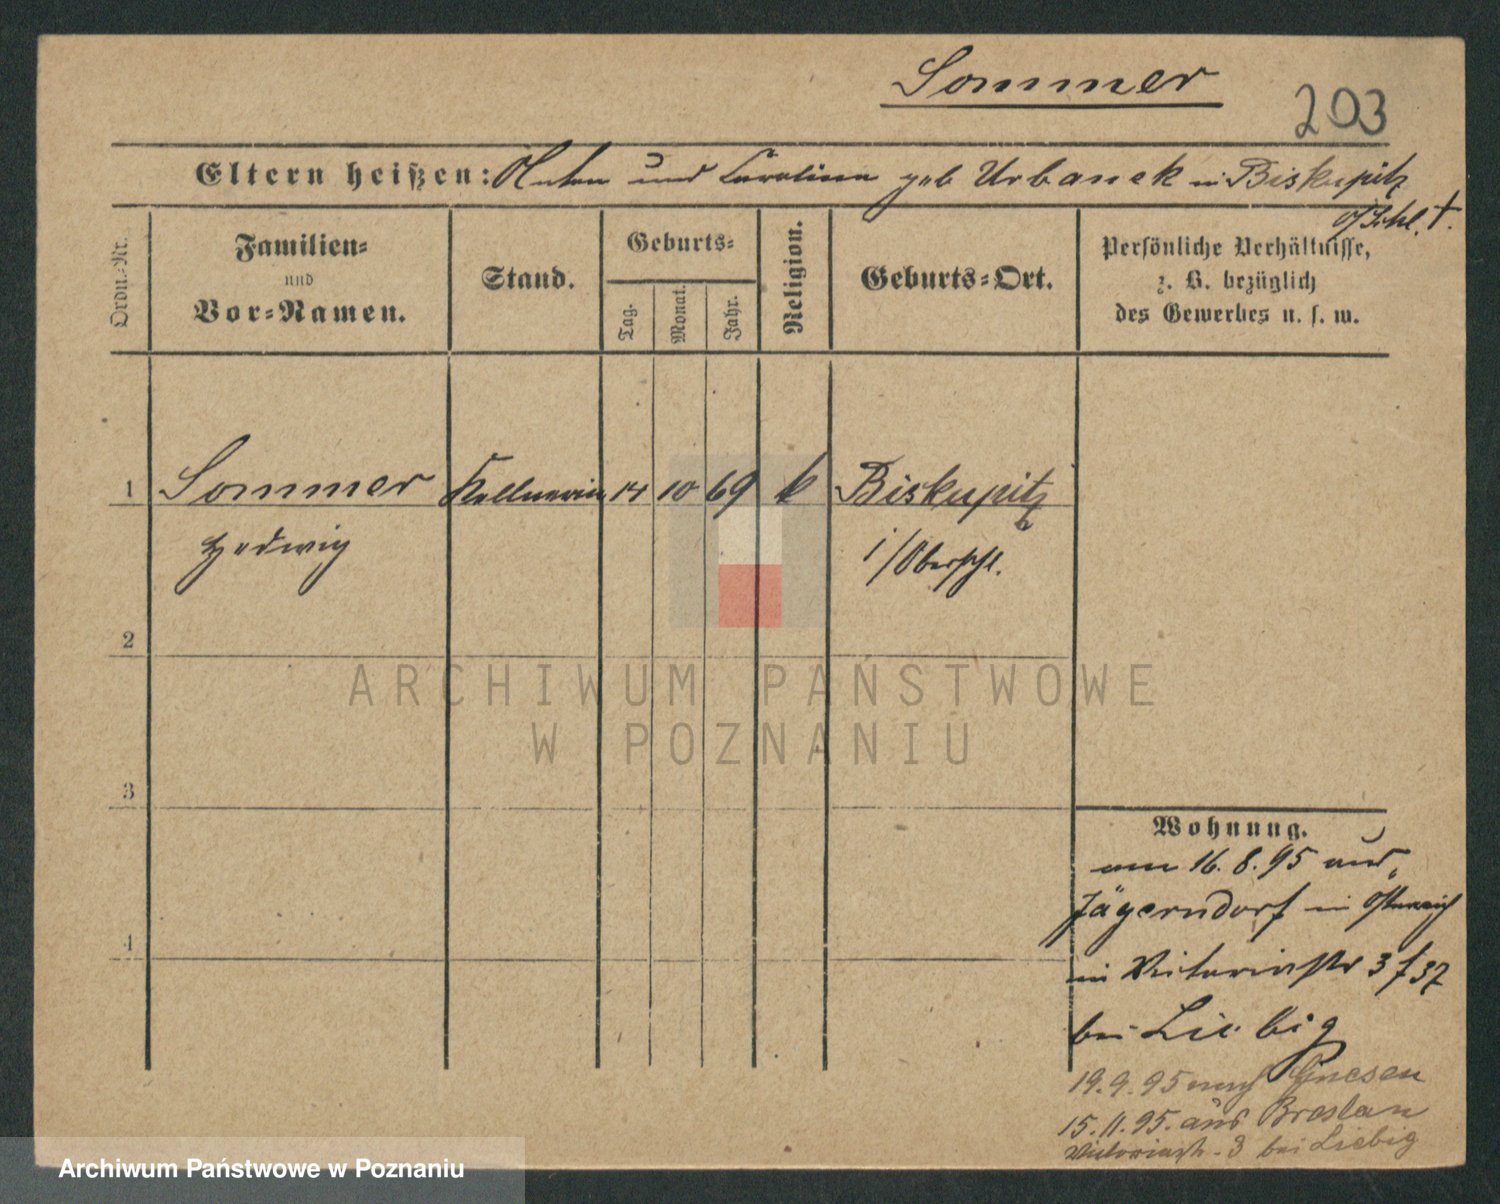 Sommer
203
Eltern heißen: Anton und Carolina geb Urbanek in Biskupitz
o/Schl. †.
Ordn.=Nr.
Familien=
und
Vor=Namen.
Stand.
Geburts=
Tag.
Monat.
Jahr.
Religion.
Geburts=Ort.
Persönliche Verhältnisse,
z. B. bezüglich
des Gewerbes u. s. w.
1 Sommer Kellnerin 14 10 69 k Biskupitz
Hedwig i/Oberschl.
2
ARCHIWUM PAŃSTWOWE
W POZNANIU
3
Wohnung.
am 16. 8. 95 aus
Jägerndorf in Österreich
4
in Victoriastr 3
bei Liebig
19. 9. 95 nach Gnesen
15. 11. 95. aus Breslau
Victoriastr. 3 bei Liebig
Archiwum Państwowe w Poznaniu